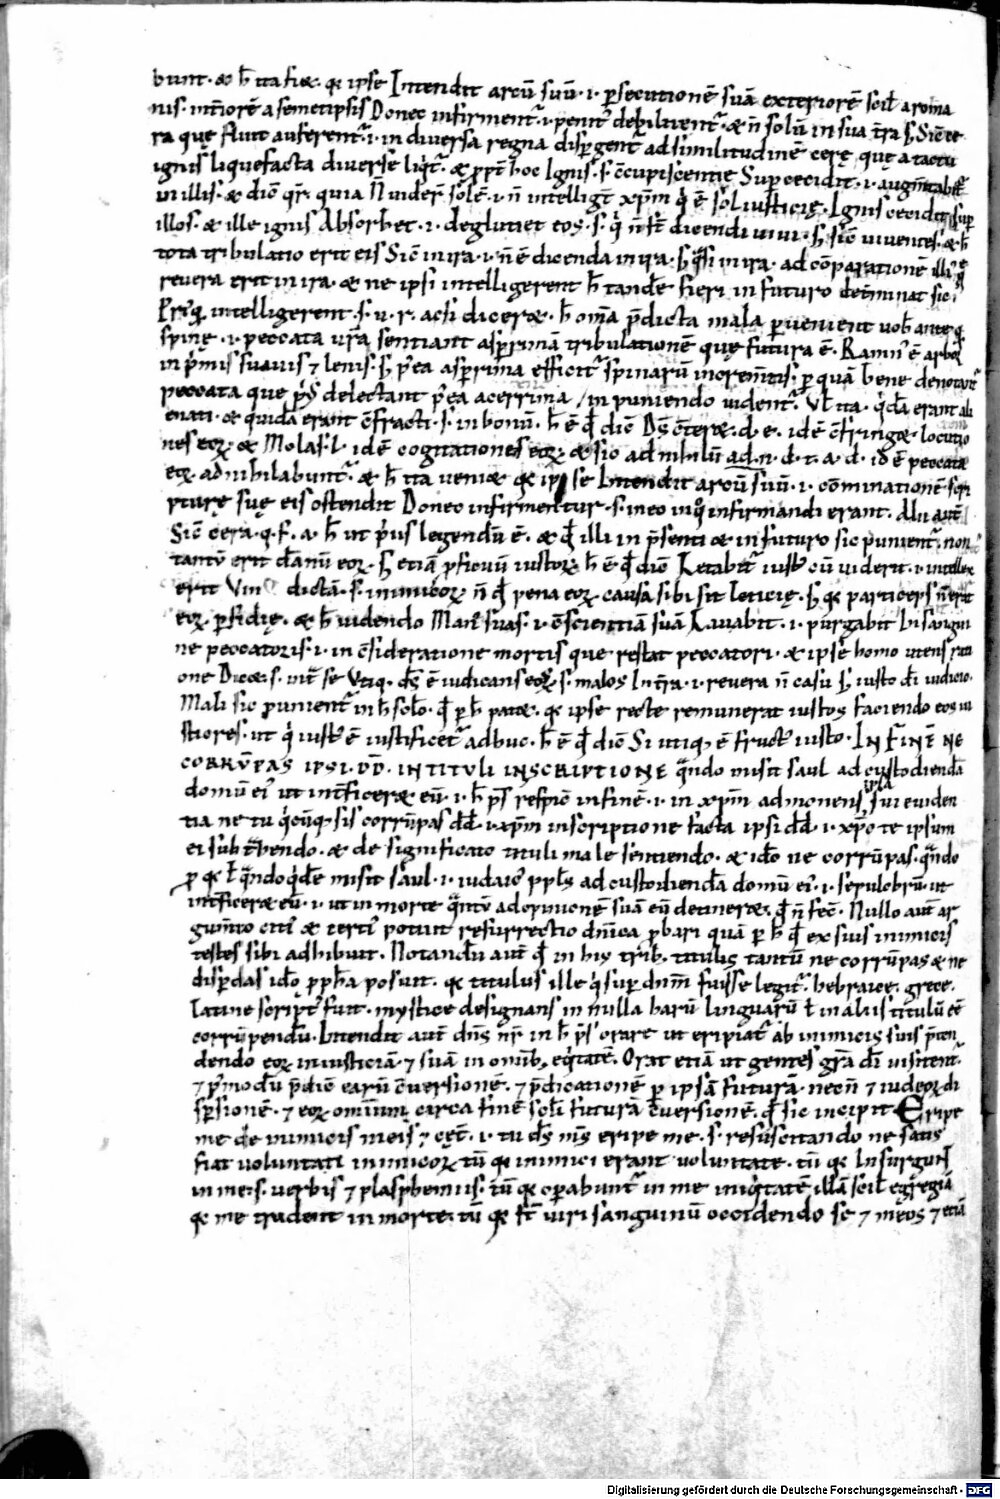 bunt · & h̄ ita fi&. q; ipse Intendit arcū suū · i · ꝑsecutionē suā exteriorē scil
nis · int̄iorē a semetipsis Donec infirment᷑ · i · penit᷒ debilitent᷑ · & n̄ solū in sua t̄ra
ra quę fluit auferent᷑ · i · in diversa regna dispergent᷑ ad similitudinē cerę quę a tactu
ignis liquefacta diverse liq̇t᷑ · & ꝓpt̄ hoc Ignis · s · c̄cupiscentie Supercecidit · i · augm̄tabit᷑
in illis · & dic̄o qr̄ · quia N̄ uider̄ solē · i · n̄ intelligt̄ xp̄m q̇ ē sol iusticię · Ignis cecidit sup
illos · & ille ignis Absorbet · i · deglutiet eos · s · q̇ n̄ st̄ dicendi uiui · s; sic̄ uiuentes · & h̄
tota tribulatio erit eis Sic̄ in ira · i · n̄ ē dicenda in ira · s; q̄si in ira · ad cōparationē illi᷒
reuera erit in ira · & ne ipsi intelligerent h̄ tandē fieri in futuro det̄minat sic ·
Priusq̄ intelligerent · s · u · r · acsi dicer& · h̄ om̄a p̄dicta mala peruenient uob̄ anteq̄
spinę · i · peccata ur̄a sentiant asperrimā tribulationē quę futura ē · Ramn᷒ ē arbor
in p̄mis suauis ⁊ lenis · s; p᷒ea asperrima efficit᷑ spinarū increm̄tis · per quā bene denotant᷑
peccata que p̄us delectant p᷒ea acerrima in puniendo uident᷑ · Ul̄ ita · q̇dā erant ali
enati · & quidā erant c̄fracti · s · in bonū · h̄ ē q̄ dic̄ Ds̄ c̄ter& · d · e · idē c̄fring& locutio
nes eoꝝ · & Molas · l · idē cogitationes eoꝝ · & sic ad nihilū ad · n · d · t · a · d · id ē peccata
eoꝝ · adnihilabunt᷑ · & h̄ ita ueni& q; ipse Intendit arcū suū · i · cōminationē scri
pturę suę eis ostendit Donec infirmentur · s · in eo in q̊ infirmandi erant · Alii aut̄
Sic̄ cera · q · f · a · h̄ ut p᷒us legendū ē · & q̄ illi in p̄senti & in futuro sic punient᷑ · non
tantū erit dānū eoꝝ · s; etiā ꝓficuū iustoꝝ h̄ ē q̄ dic̄ Letabit᷑ iust᷒ cū uiderit · i · intellex
erit Vin dictā · s · inimicoꝝ n̄ q̄ pena eoꝝ · causa sibi sit leticię · s; q; particeps n̄ erit
eoꝝ · perfidię · & h̄ uidendo Man᷒ suas · i · c̄scientiā suā Lauabit · i · purgabit In sangui
ne peccatoris · i · in c̄sideratione mortis que restat peccatori · & ipse homo utens rati
one Dic& · s · int᷑ se Vtiq; · ds̄ ē iudicans eos · s · malos In t̄ra · i · reuera n̄ casu s; iusto dī iudicio ·
Mali sic punient᷑ in h̄ sclo · q̄ per h̄ pat& · q; ipse recte remunerat iustos faciendo eos iu
stiores · ut q̇ iust᷒ ē iustificet᷑ adhuc · h̄ ē q̄ dic̄ Si utiq; ē fruct᷒ iusto · IN FINĒ NE
CORRŪPAS IPSI · DD̄ · IN TITULI INSCRIPTIONE q̄ndo misit saul ad custodiendā
domū ei᷒ ut int̄ficer& eū · i · h̄ ps̄ respic̄ in finē · i · in xp̄m admonens ipsa sui euiden
tia ne tu q̇cūq; sis corrūpas dd̄ · i · xp̄m inscriptione facta ipsi dd̄ · i · xp̄o te ipsum
ei subt̄hendo · & de significato tituli male sentiendo · & idō ne corrūpas · q̄ndo
ꝓ q; ł q̄ndoq̇dē misit saul · i · iudaic᷒ ppl̄s ad custodiendā domū ei᷒ · i · sepulchrū · ut
int̄ficer& eū · i · ut in morte q̄ntū ad opinionē suā eū detiner& · q̄ n̄ fec̄ · Nullo aut̄ ar
gum̄to citi᷒ & certi᷒ potuit resurrectio dn̄ica ꝓbari quā per h̄ q̄ ex suis inimicis
testes sibi adhibuit · Notandū aut̄ q̄ in his trib; titulis tantū ne corrūpas & ne
disperdas idō ꝓph̄a posuit · q; titulus ille q̇ super dn̄m fuisse legit᷑ · hebraice · grece ·
latine script᷒ fuit · mystice designans in nulla harū linguarū ł in aliis titulū eē
corrūpendū · Intendit aut̄ dn̄s nr̄ in h̄ ps̄ orare ut eripiat᷑ ab inimicis suis p̄ten
dendo eoꝝ iniusticiā · ⁊ suā in omib; eq̇tatē · Orat etiā ut gentes grā dī uisitent᷑ ·
⁊ p᷒modū p̄dic̄ earū c̄uersionē · ⁊ p̄dicationē per ipsā futurā · necn̄ ⁊ iudeoꝝ di
spersionē · ⁊ eoꝝ omnium circa finē scl̄i futurā c̄uersionē · q̄ sic incipit · Eripe
me de inimicis meis ⁊ cet̄ · i · tu ds̄ ms̄ eripe me · s · resuscitando ne satis
fiat uoluntati inimicoꝝ tū q; inimici erant uoluntate · tū q; Insurgunt
in me · s · uerbis ⁊ plasphemiis · tū q; operabunt᷑ in me iniq̇tatē illā scil egregiā
q; me tradent in morte · tū q; st̄ uiri sanguinū occidendo se ⁊ meos ⁊ etiā
Digitalisierung gefördert durch die Deutsche Forschungsgemeinschaft · DFG